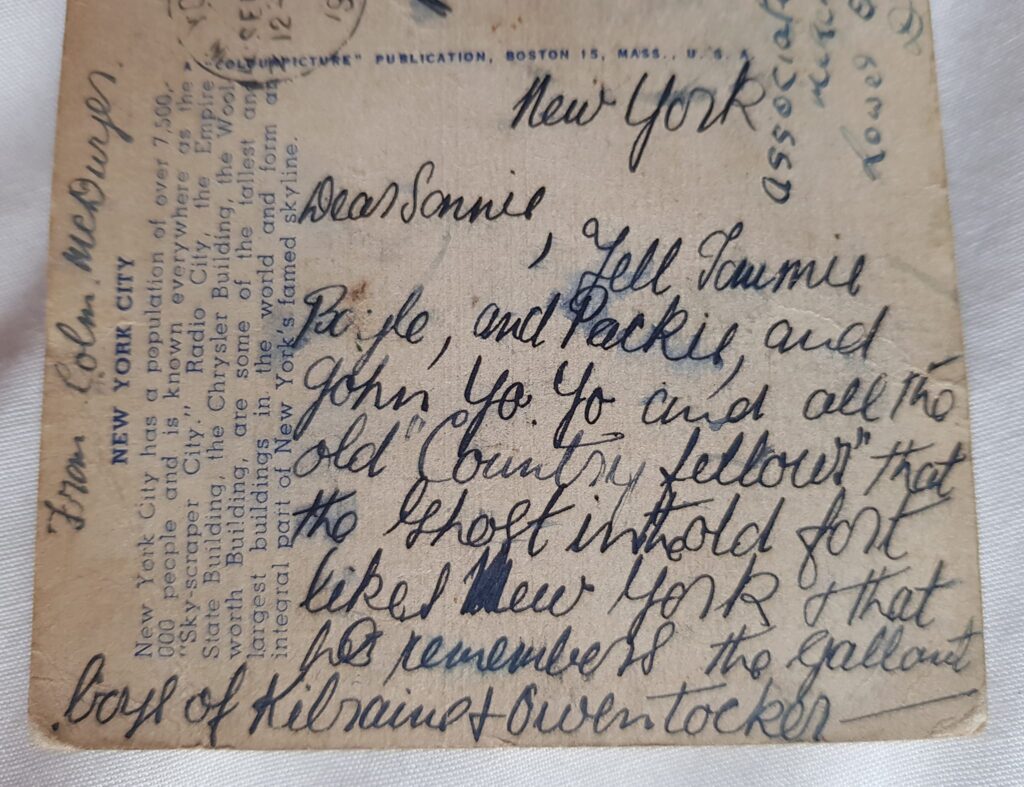 A "COLOURPICTURE" PUBLICATION, BOSTON 15, MASS., U. S. A
New York
Dear Sonnie
, Tell Jammie
Boyle, and Packie, and
John Yo Yo and all the
old "Country fellows" that
the Ghost in the old fort
likes New York & that
he remembers the gallant
boys of Kilraine & Owentocker
From Colm McDwyer.
NEW YORK CITY
New York City has a population of over 7,500,
000 people and is known everywhere as the
"Sky-scraper City." Radio City, the Empire
State Building, the Chrysler Building, the Wool
worth Building, are some of the tallest and
largest buildings in the world and form an
integral part of New York's famed skyline.
SE
12
Lower